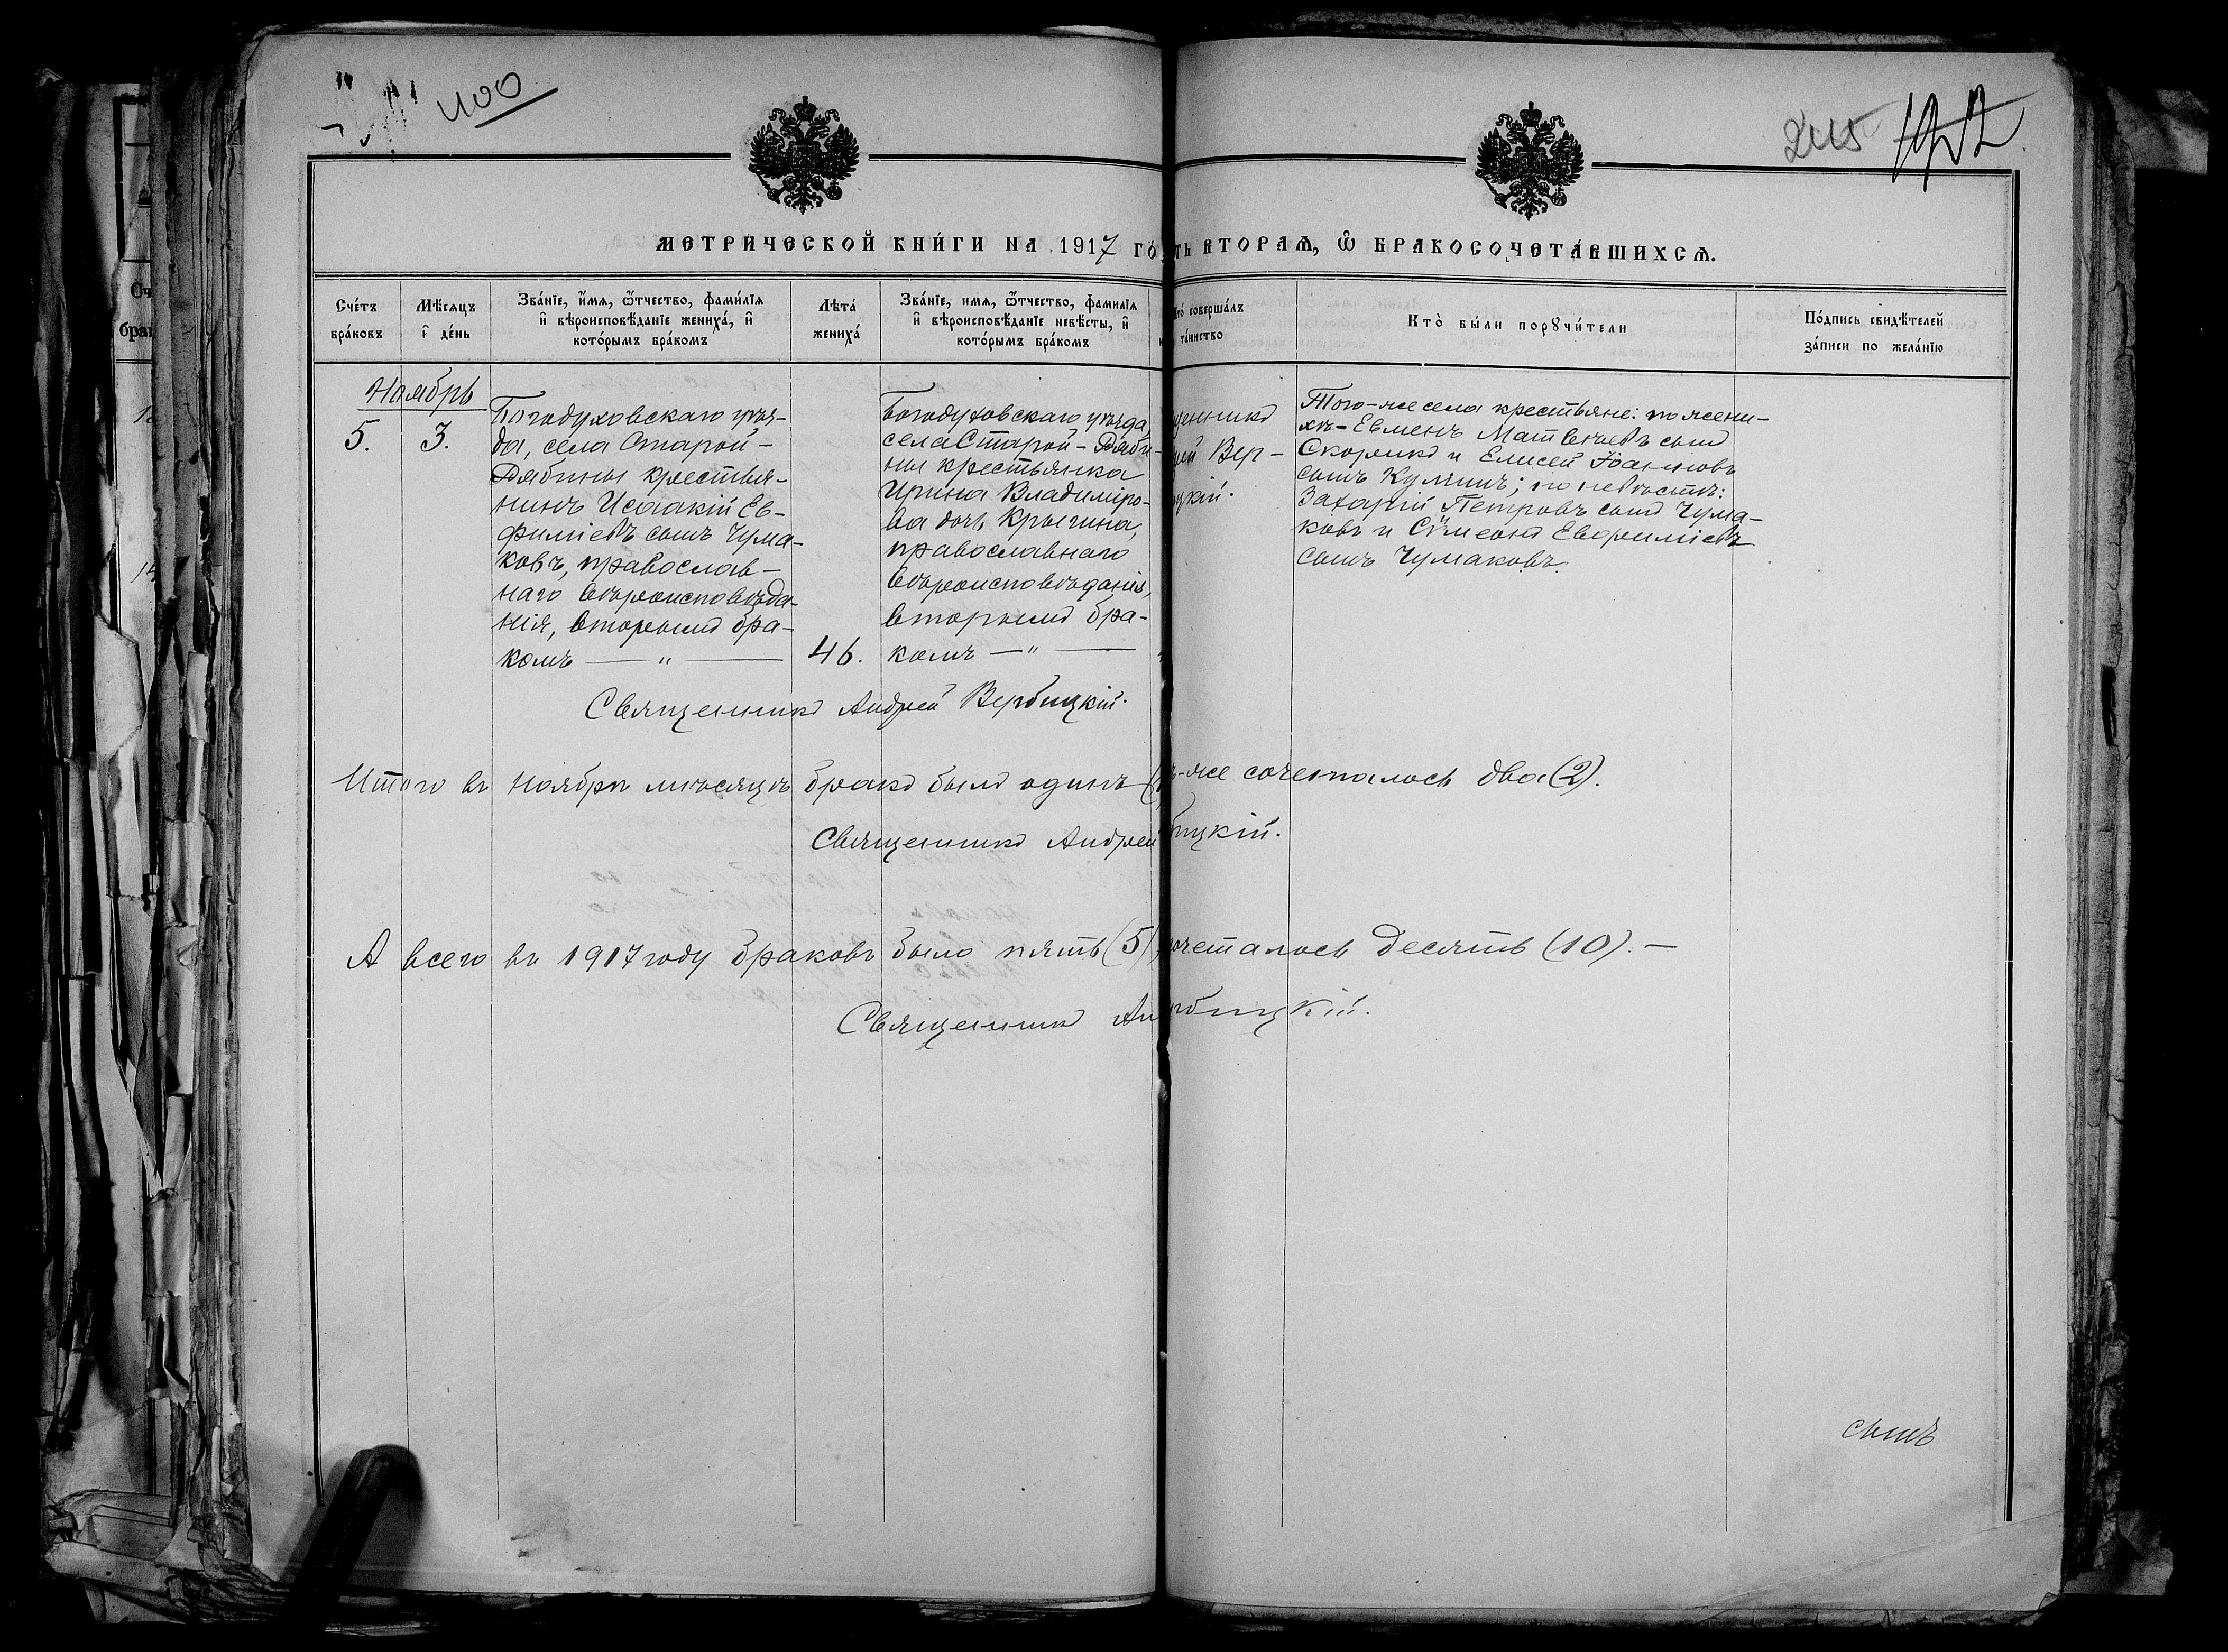 400
245
МЕТРИЧЕСКОЙ КНИ́ГИ НА 1917 ГО́
ТЬ ВТОРАѦ, Ѿ БРАКОСОЧЕТА́ВШИХСѦ.
Сче́тъ
бра́ковъ
Мѣ́сяцъ
и де́нь
Зва́нїе, и́мѧ, ѻ́тчество, фами́лїѧ
и҆ вѣроисповѣ́данїе жениха́, и҆
кото́рымъ бра́комъ
Лѣта́
жениха́
Зва́нїе, имѧ, ѻ́тчество, фамилїѧ
и҆ вѣроисповѣ́данїе невѣ́сты, и҆
кото́рымъ бра́комъ
то́ соверша́лъ
та́инство
Кто̀ бы́ли порꙋчи́тели
По́дпись свидѣ́телей
за́писи по жела́нїю
Ноябрь
5.
3.
Богодуховскаго уѣз-
да, села Старой-
Рябины крестья-
нинъ Исаакій Ев-
фиміевъ сынъ Чума-
ковъ, православ-
наго вѣроисповѣда-
нія, вторымъ бра-
комъ — " —
46.
Богодуховскаго уѣзда,
села Старой-Ряби-
ны крестьянка
Ирина Владиміро-
ва дочь Крыгина,
православнаго
вѣроисповѣданія,
вторымъ бра-
комъ — " —
щенникъ
ей Вер-
цкій.
Того-же села крестьяне: по жени-
хѣ- Евменъ Матвѣевъ сынъ
Скорикъ и Елисей Іоанновъ
сынъ по невѣстѣ:
Захарій Петровъ сынъ Чума-
ковъ и Сѵмеонъ Евфиміевъ
сынъ Чумаковъ.
Священникъ Андрей Вербицкій.
Итого въ ноябрѣ мѣсяцѣ бракъ былъ одинъ (
ъ-же сочеталось два (2).
Священникъ Андрей
бицкій.
А всего въ 1917 году браковъ было пять (5)
сочеталось десять (10). —
Священникъ Ан
рбицкій.
сынъ